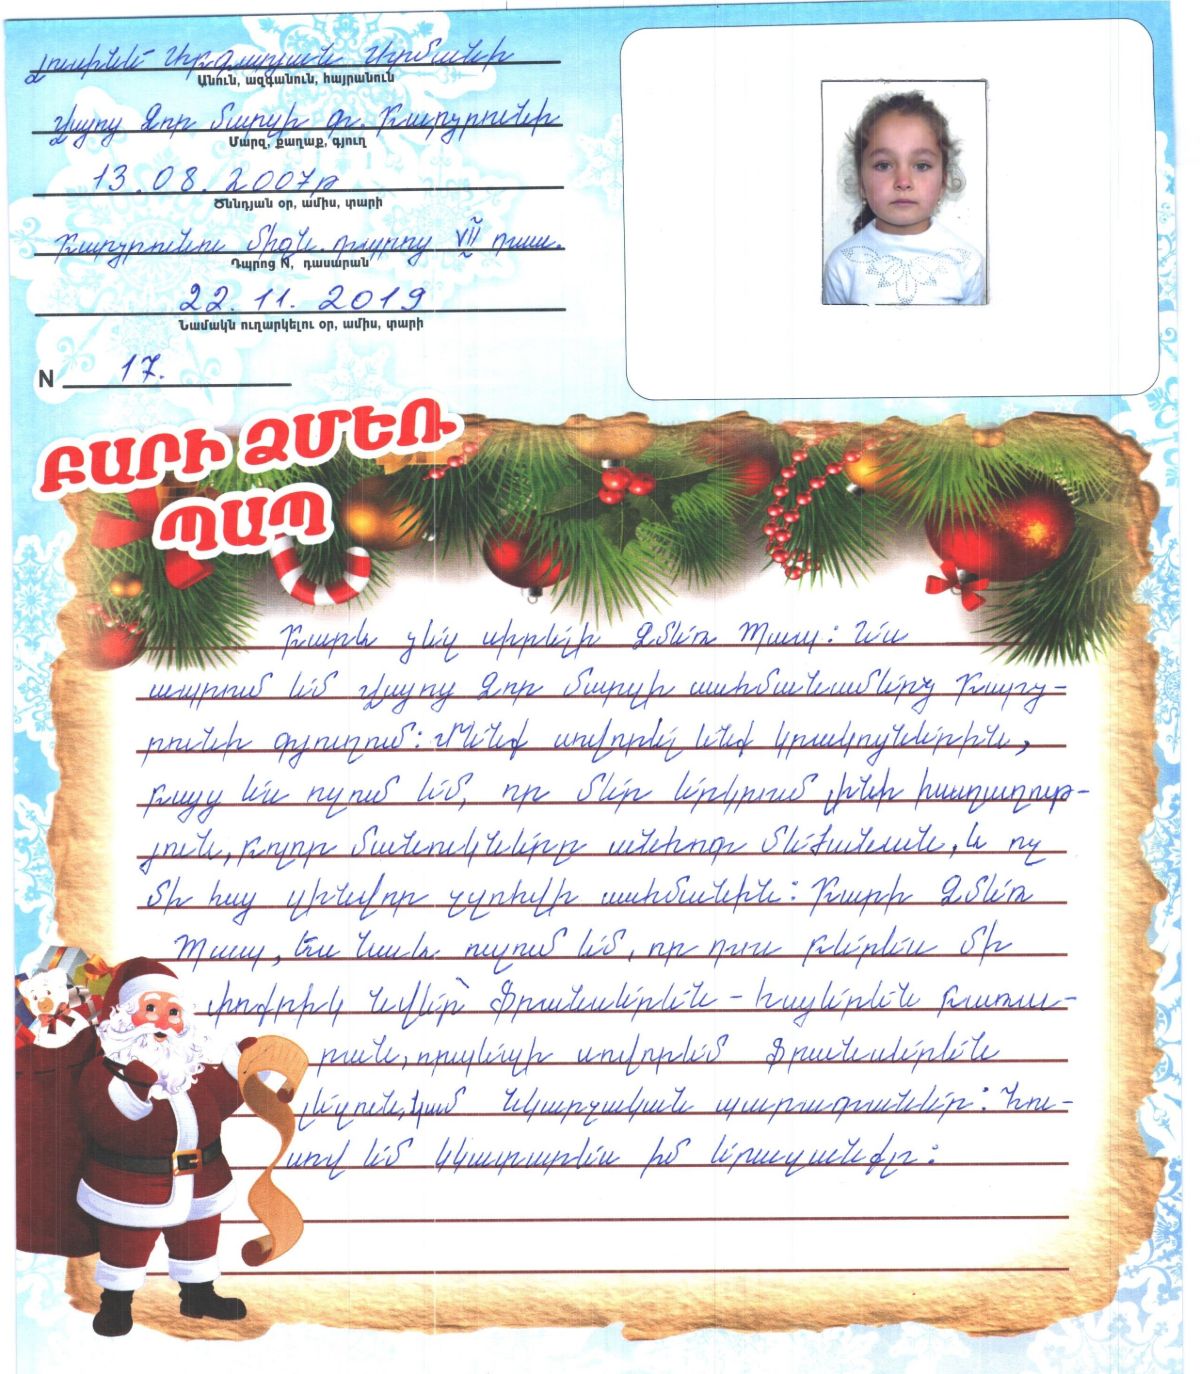 Լուսինե Արմանի
Անուն, ազգանուն, հայրանուն
Վայոց Ձոր մարզի գ. Բարձրունի
Մարզ, քաղաք, գյուղ
13.08.2007թ
Ծննդյան օր, ամիս, տարի
Բարձրունու միջն. դպրոց VII դաս.
Դպրոց N, դասարան
22.11.2019
Նամակն ուղարկելու օր, ամիս, տարի
N 17.
ԲԱՐԻ ՁՄԵՌ
ՊԱՊ
Բարև ձեզ սիրելի Ձմեռ Պապ: Ես
ապրում եմ Վայոց Ձոր մարզի սահմանամերձ Բարձ-
րունի գյուղում: Մենք սովորել ենք կրակոցներին,
Բայց ես ուզում եմ, որ մեր երկրում լինի խաղաղութ-
յուն, բոլոր մանուկները անհոգ մեծանան, և ոչ
մի հայ զինվոր չզոհվի սահմանին: Բարի Ձմեռ
Պապ, Ես նաև ուզում եմ, որ դուք բերեք մի
փոքրիկ նվեր՝ Ֆրանսերեն - հայերեն բառա-
րան, որպեսզի սովորեմ ֆրանսերեն
լեզուն, կամ նկարչական պարագաներ: Հու-
սով եմ կկատարեք իմ երազանքը: